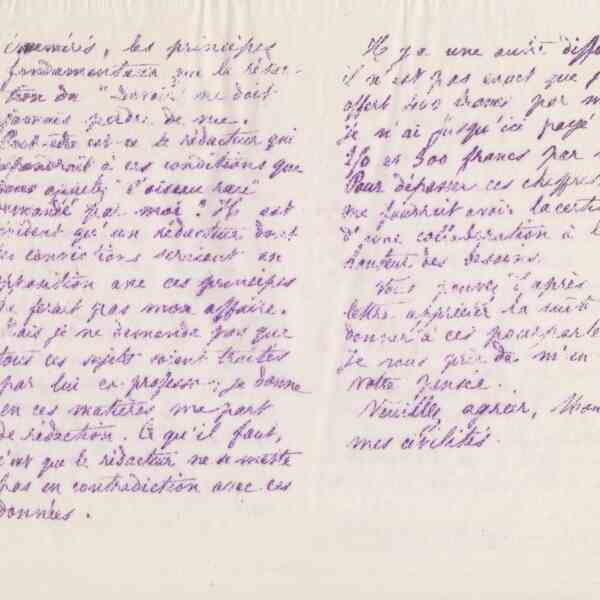 énumérés, les principes
fondamentaux que la rédac-
tion du "Devoir" ne doit
jamais perdre de vue.
Peut-être est-ce le rédacteur qui
répondrait à ces conditions que
vous appelez "l'oiseau rare"
demandé par moi? Il est
évident qu'un rédacteur dont
les convictions seraient en
opposition avec ces principes
ne ferait pas mon affaire.
Mais je ne demande pas que
tous ces sujets soient traités
par lui ex-professo; je donne
en ces matières ma part
de rédaction. Ce qu'il faut,
c'est que le rédacteur ne se mette
pas en contradiction avec ces
données.
Il y a une autre diffi
il n'est pas exact que j
offert francs par m
je n'ai jusqu'ici payé
et 300 francs par
Pour dépasser ces chiffres
me faudrait avoir la certi
d'une collaboration à l
hauteur des besoins.
Vous pouvez d'après
lettre apprécier la suite
donner à ces pourparle
je vous prie de m'en
votre pensée.
Veuillez agréer, Mon
mes civilités.